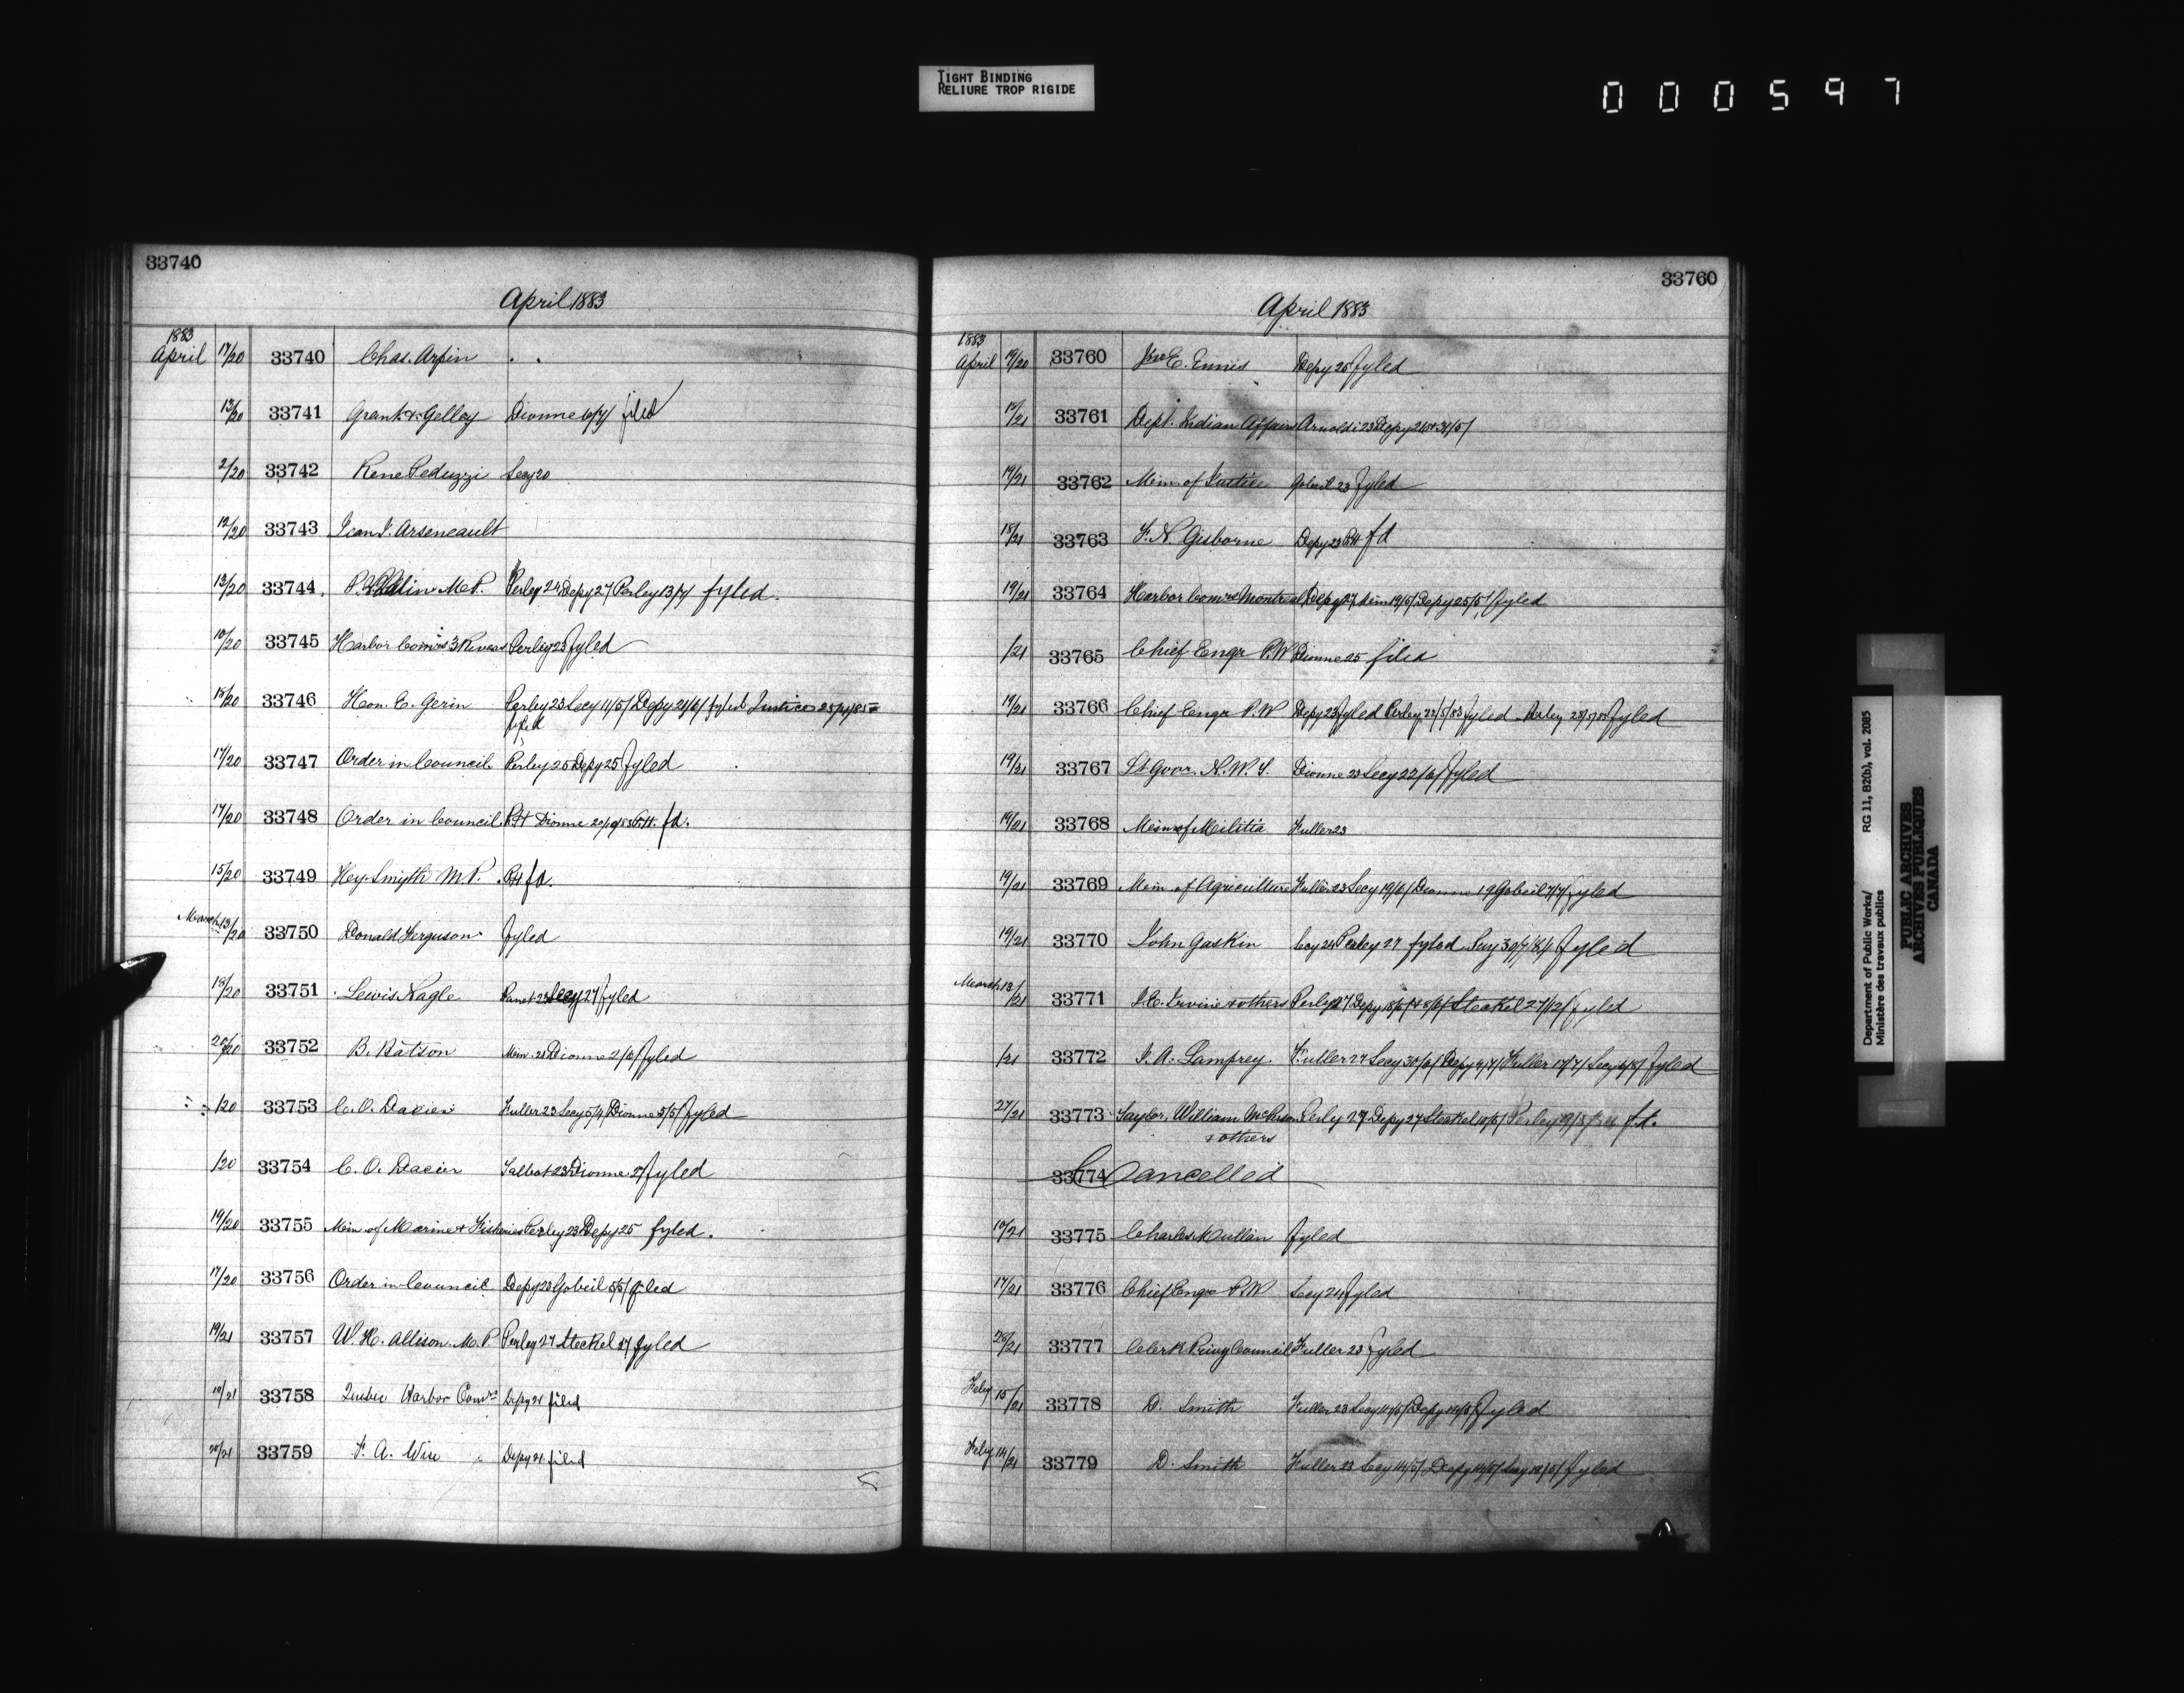 TIGHT BINDING
RELIURE TROP RIGIDE
000597
33740
April 1883
1883
April 17/20 33740 Chas. Arpin
13/20 33741 Grant & Gelley Dionne 6/7/ filed
2/20 33742 Rene Peduzzi Secy 20
12/20 33743 Jean J. Arseneault
13/20 33744 M.P. Perley 24 Depy 27 Perley 13/7/ fyled.
10/20 33745 Harbor Comrs 3 Rivers Perley 23 fyled
18/20 33746 Hon. E. Gerin Perley 23 Secy 11/5/ Depy 21/6/ fyled Justice
fyled
17/20 33747 Order in Council Perley 25 Depy 25 fyled
17/20 33748 Order in Council Dionne fd.
15/20 33749 Hey Smyth M.P. fd.
March 13/20 33750 Donald Ferguson fyled
18/20 33751 Lewis Nagle Secy 27 fyled
20/20 33752 B. Batson Min. 21 Dionne 2/6/ fyled
/20 33753 C. O. Dacier Fuller 23 Secy Dionne 5/5/ fyled
/20 33754 C. O. Dacier Talbot 23 Dionne 27 fyled
19/20 33755 Min. of Marine & Fisheries Perley 23 Depy 25 fyled.
17/20 33756 Order in Council Depy 23 Gobeil 5/5/ filed
19/21 33757 W. H. Allison M.P Perley 27 Steckel fyled
19/21 33758 Quebec Harbor Comrs Depy 21 filed
20/21 33759 F. A. Wise Depy 21 filed
33760
April 1883
1883
April 19/20 33760 Jno E. Ennis Depy 25 fyled
17/21 33761 Dept. Indian Affairs Arnoldi 23 Depy
19/21 33762 Min. of Justice Gobeil 23 fyled
18/21 33763 F. N. Gisborne Depy 23 fd
19/21 33764 Harbor Comrs Montreal Depy 27 Min 19/5/ Depy 25/5/ fyled
/21 33765 Chief Engr P.W Dionne 25 filed
19/21 33766 Chief Engr P.W Depy 23 fyled Perley 22/5/83 fyled Perley fyled
19/21 33767 Lt Govr. N.W.T. Dionne 23 Secy 22/6/ fyled
19/21 33768 Min of Militia Fuller 23
19/21 33769 Min. of Agriculture Fuller 23 Secy 19/6/ Dionne 19 Gobeil 7/7/ fyled
19/21 33770 John Gaskin Secy 24 Perley 27 fyled Secy 30/7/84 fyled
March 13/21 33771 J. C. Irvine & others Perley 27 Depy Steckel 27/12/ fyled
/21 33772 J. A. Lamprey. Fuller 27 Secy 30/6/ Depy 4/7/ Fuller 17/7/ Secy fyled
27/21 33773 Taylor, William McPherson Perley 27 Depy 27 Steckel 10/5/ Perley fd.
& others
33774 Cancelled
10/21 33775 Charles Mullin fyled
17/21 33776 Chief Engr P.W Secy 24 fyled
20/21 33777 Clerk Privy Council Fuller 23 fyled
Feby 15/21 33778 D. Smith Fuller 23 Secy 14/5/ Depy 14/5/ fyled
Feby 14/21 33779 D. Smith Fuller 23 Secy 14/5/ Depy 14/5/ Secy 18/5/ fyled
Department of Public Works/ RG 11, B2(b), vol. 2085
Ministère des travaux publics
PUBLIC ARCHIVES
ARCHIVES PUBLIQUES
CANADA